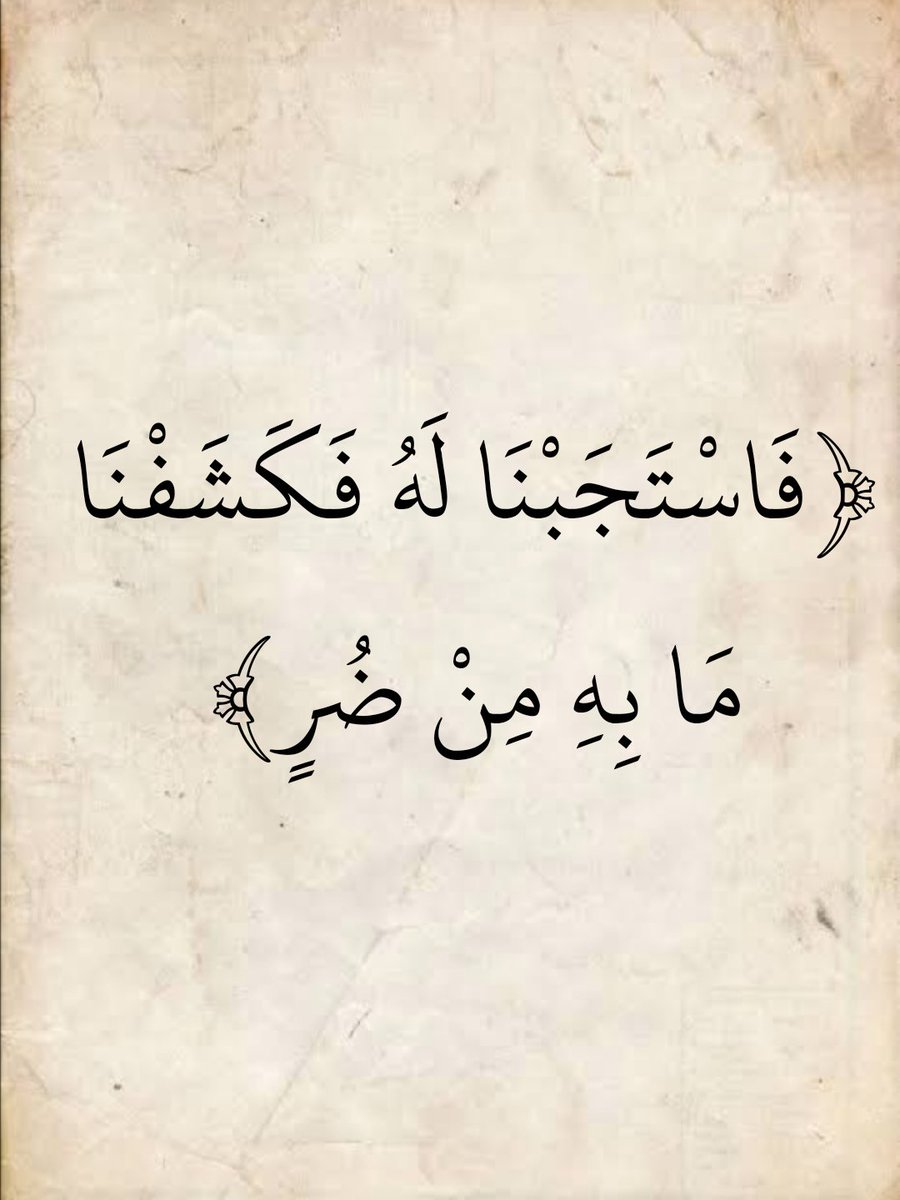 ﴿فَاسْتَجَبْنَا لَهُ فَكَشَفْنَا
مَا بِهِ مِنْ ضُرٍ﴾